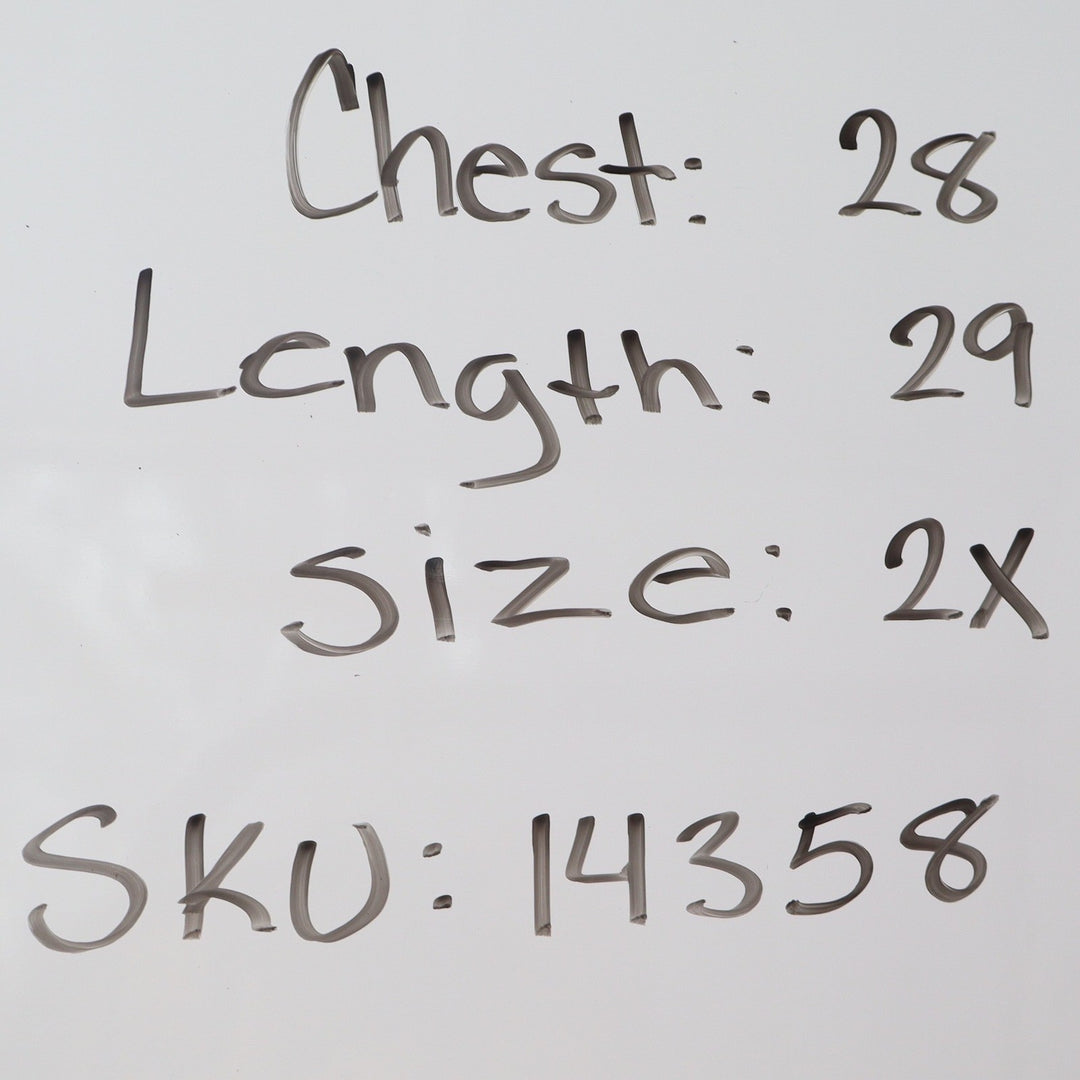 Chest: 28
Length: 29
Size: 2X
SKU: 14358